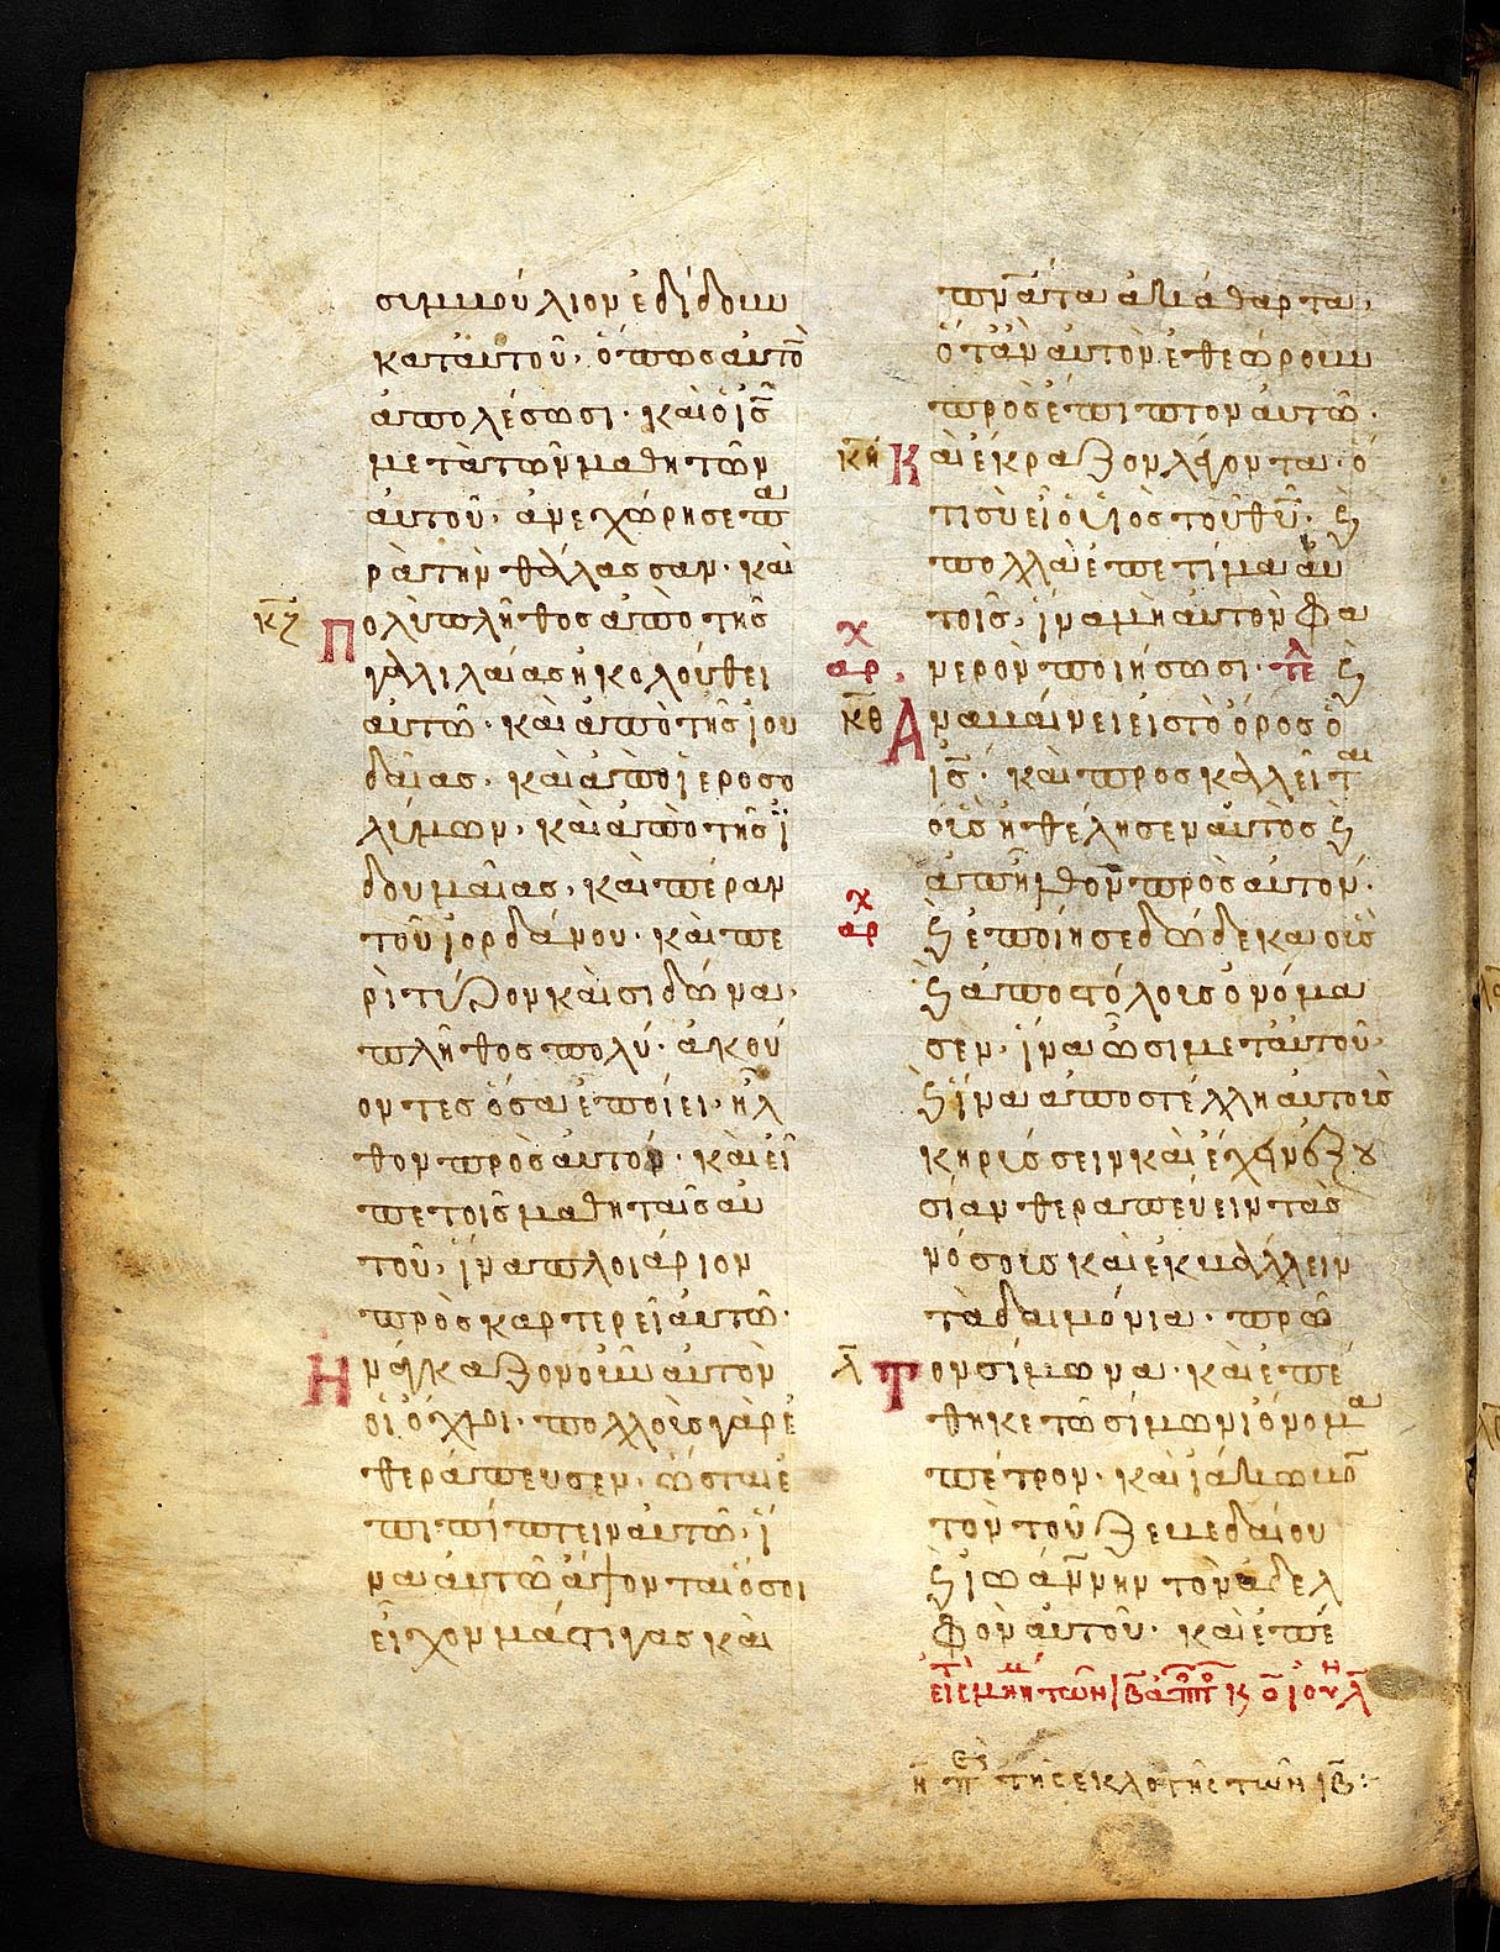 συμβούλιον ἐδίδουν
κατ᾽ αὐτοῦ, ὅπως αὐτὸ
ἀπολέσωσι· καὶ ὁ ις
μετὰ τῶν μαθητῶν
αὐτοῦ, ἀνεχώρησε πα
ρὰ τὴν θάλασσαν· καὶ
κζ Πολὺ πλῆθος ἀπὸ τῆς
γαλιλαίας ἠκολούθει
αὐτῶ· καὶ ἀπὸ τῆς ἰου
δαίας, καὶ ἀπὸ ἱεροσο
λύμων, καὶ ἀπὸ τῆς ἰ
δουμαίας, καὶ πέραν
τοῦ ἰορδάνου· καὶ πε
ρὶ τύρον καὶ σιδῶνα,
πλῆθος πολύ· ἀκού
οντες ὅσα ἐποίει, ἦλ
θον πρὸς αὐτόν· καὶ εἶ
πε τοῖς μαθηταῖς αὐ
τοῦ, ἵνα πλοιάριον
προσκαρτερεῖ αὐτῶ·
Ηνάγκαζον οὖν αὐτὸν
οἱ ὄχλοι· πολλοὺς γὰρ ἐ
θεράπευσεν, ὥστε ἐ
πιπίπτειν αὐτῶ, ἵ
να αὐτῶ ἅψονται ὅσοι
εἶχον μάστιγας καὶ
πνατα ἀκάθαρτα,
ὅτ᾽ ἂν αὐτὸν ἐθεώρουν
προσέπιπτον αὐτῶ·
κη Καὶ ἔκραζον λέγοντα· ὅ
τι σὺ εἶ ὁ υἱὸς τοῦ θυ· ϗ
πολλὰ ἐπετίμα αὐ
τοῖς, ἵνα μὴ αὐτὸν φα
αρχ νερὸν ποιήσωσι· τελ ϗ
κθ Αναβαίνει εἰς τὸ ὄρος ὁ
ις· καὶ προσκαλεῖται
οὓς ἤθελησεν αὐτὸς ϗ
ἀπῆλθον πρὸς αὐτόν·
αρχ ϗ ἐποίησε δώδεκα οὓς
ϗ ἀποστόλους ὀνόμα
σεν, ἵνα ὦσι μετ᾽ αὐτοῦ,
ϗ ἵνα ἀποστέλλη αὐτοὺς
κηρύσσειν καὶ ἔχειν ἐξου
σίαν θεραπεύειν τὰς
νόσους καὶ ἐκβάλλειν
τὰ δαιμόνια· πρῶ
λ Τον σίμωνα· καὶ ἐπέ
θηκε τῶ σίμωνι ὄνομα
πέτρον· καὶ ἰάκωβο
τὸν τοῦ ζεβεδαίου
ϗ ἰωάννην τὸν ἀδελ
φὸν αὐτοῦ· καὶ ἐπέ
τῶν ιβ ἀπο
τῆς ἐκλογῆς τῶν ιβ: